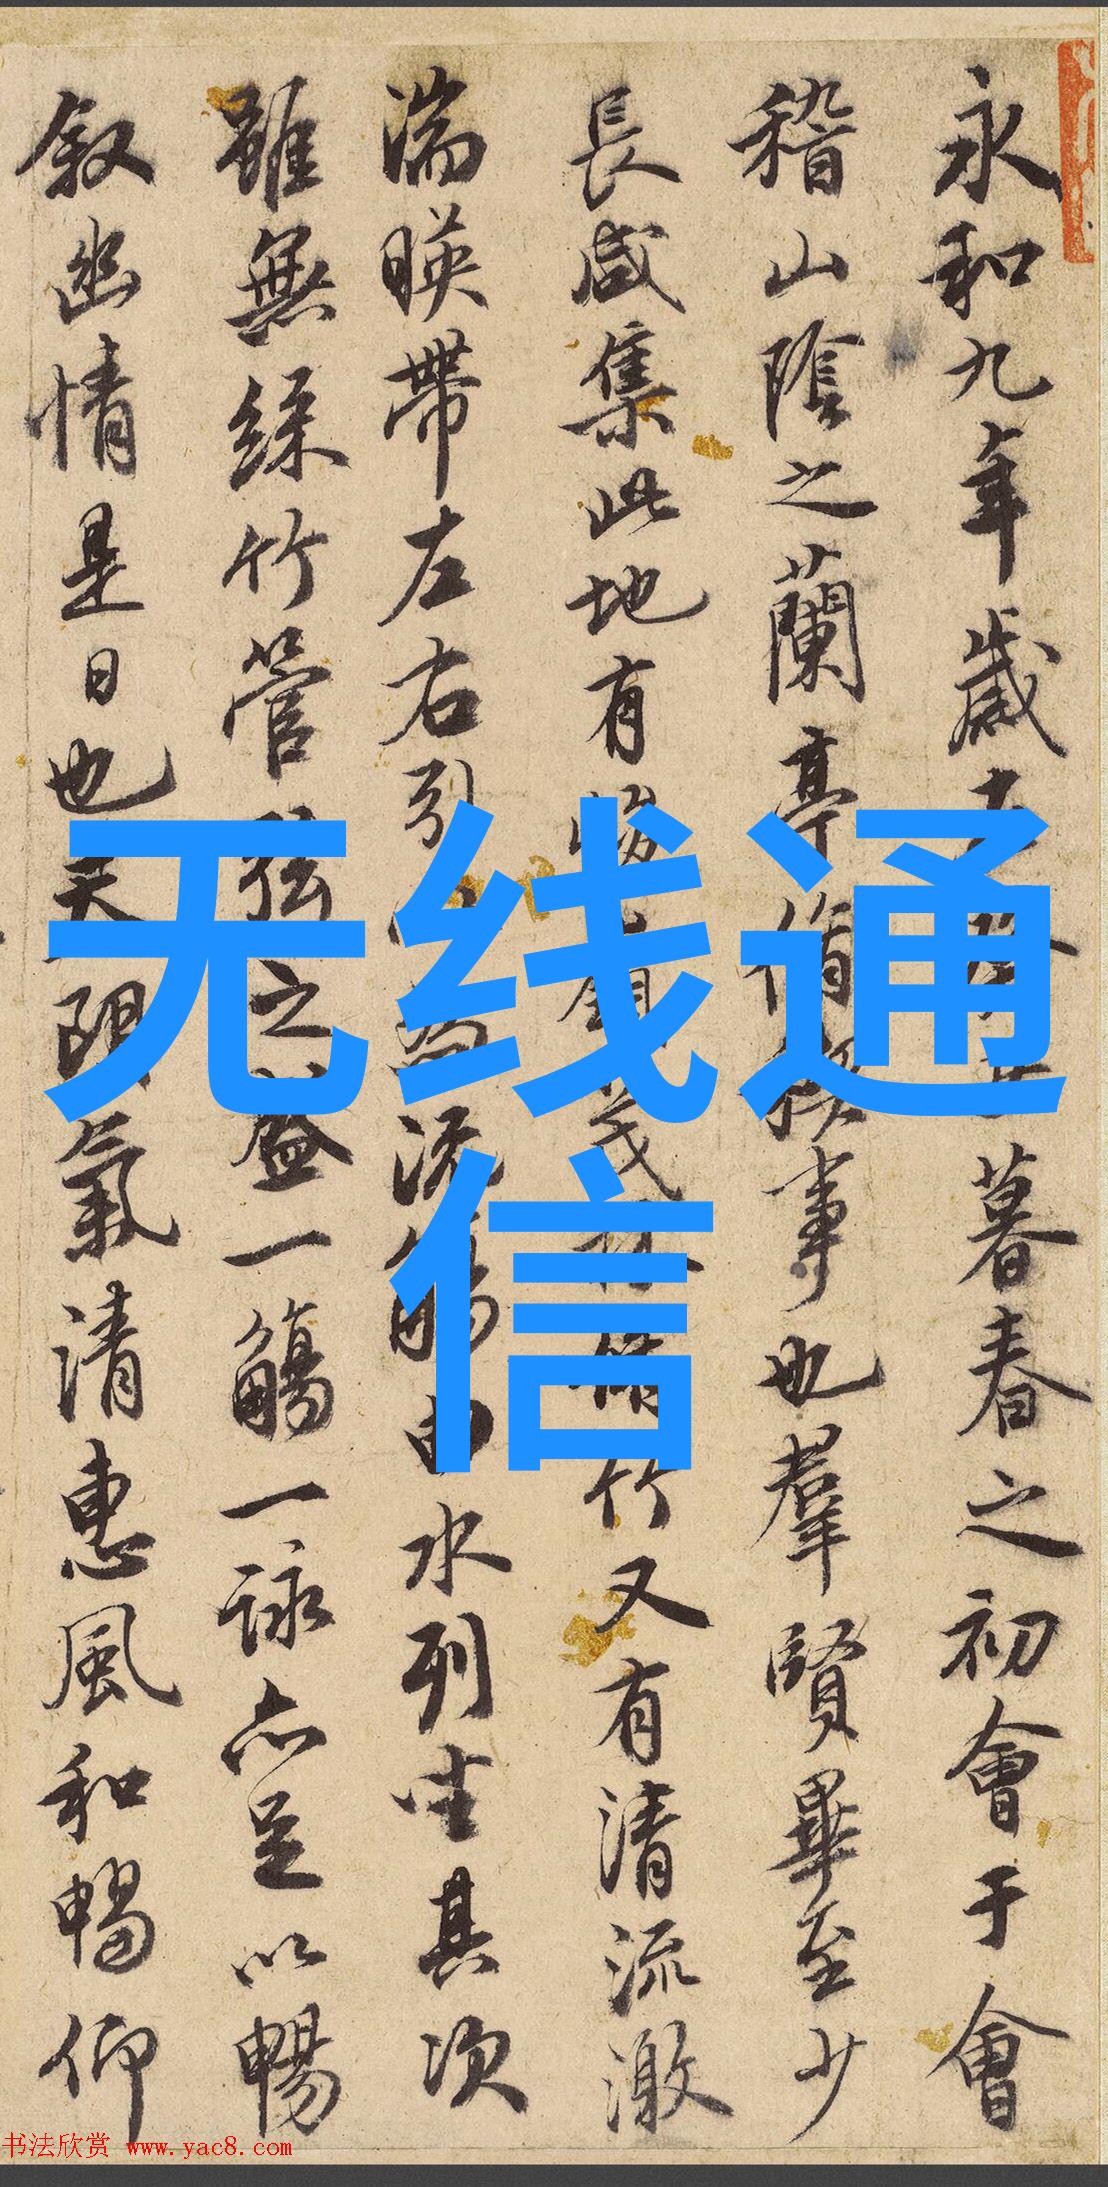 永和九年歲暮春之初會于會
稽山陰之蘭亭脩事也羣賢畢至少
長咸集此地有茂林脩竹又有清流激
湍暎帶左右引流觴曲水列坐其次
雖無絲竹管弦之盛一觴一詠亦足以暢
叙幽情是日也天朗氣清惠風和暢仰
无线通
信
书法欣赏 www.yac8.com